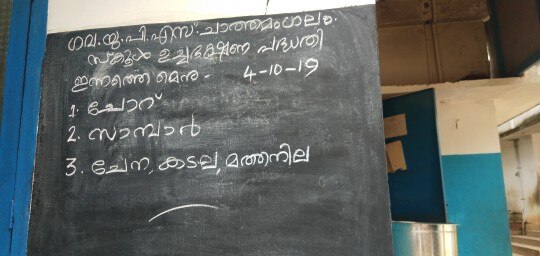 ഗവ.യു.പി.എസ്.ചാത്തമംഗലം.
സ്കൂൾ ഉച്ചഭക്ഷണ പദ്ധതി
ഇന്നത്തെ മെനു - 4-10-19
1. ചോറ്
2. സാമ്പാർ
3. ചേന, കടല, മത്തനില